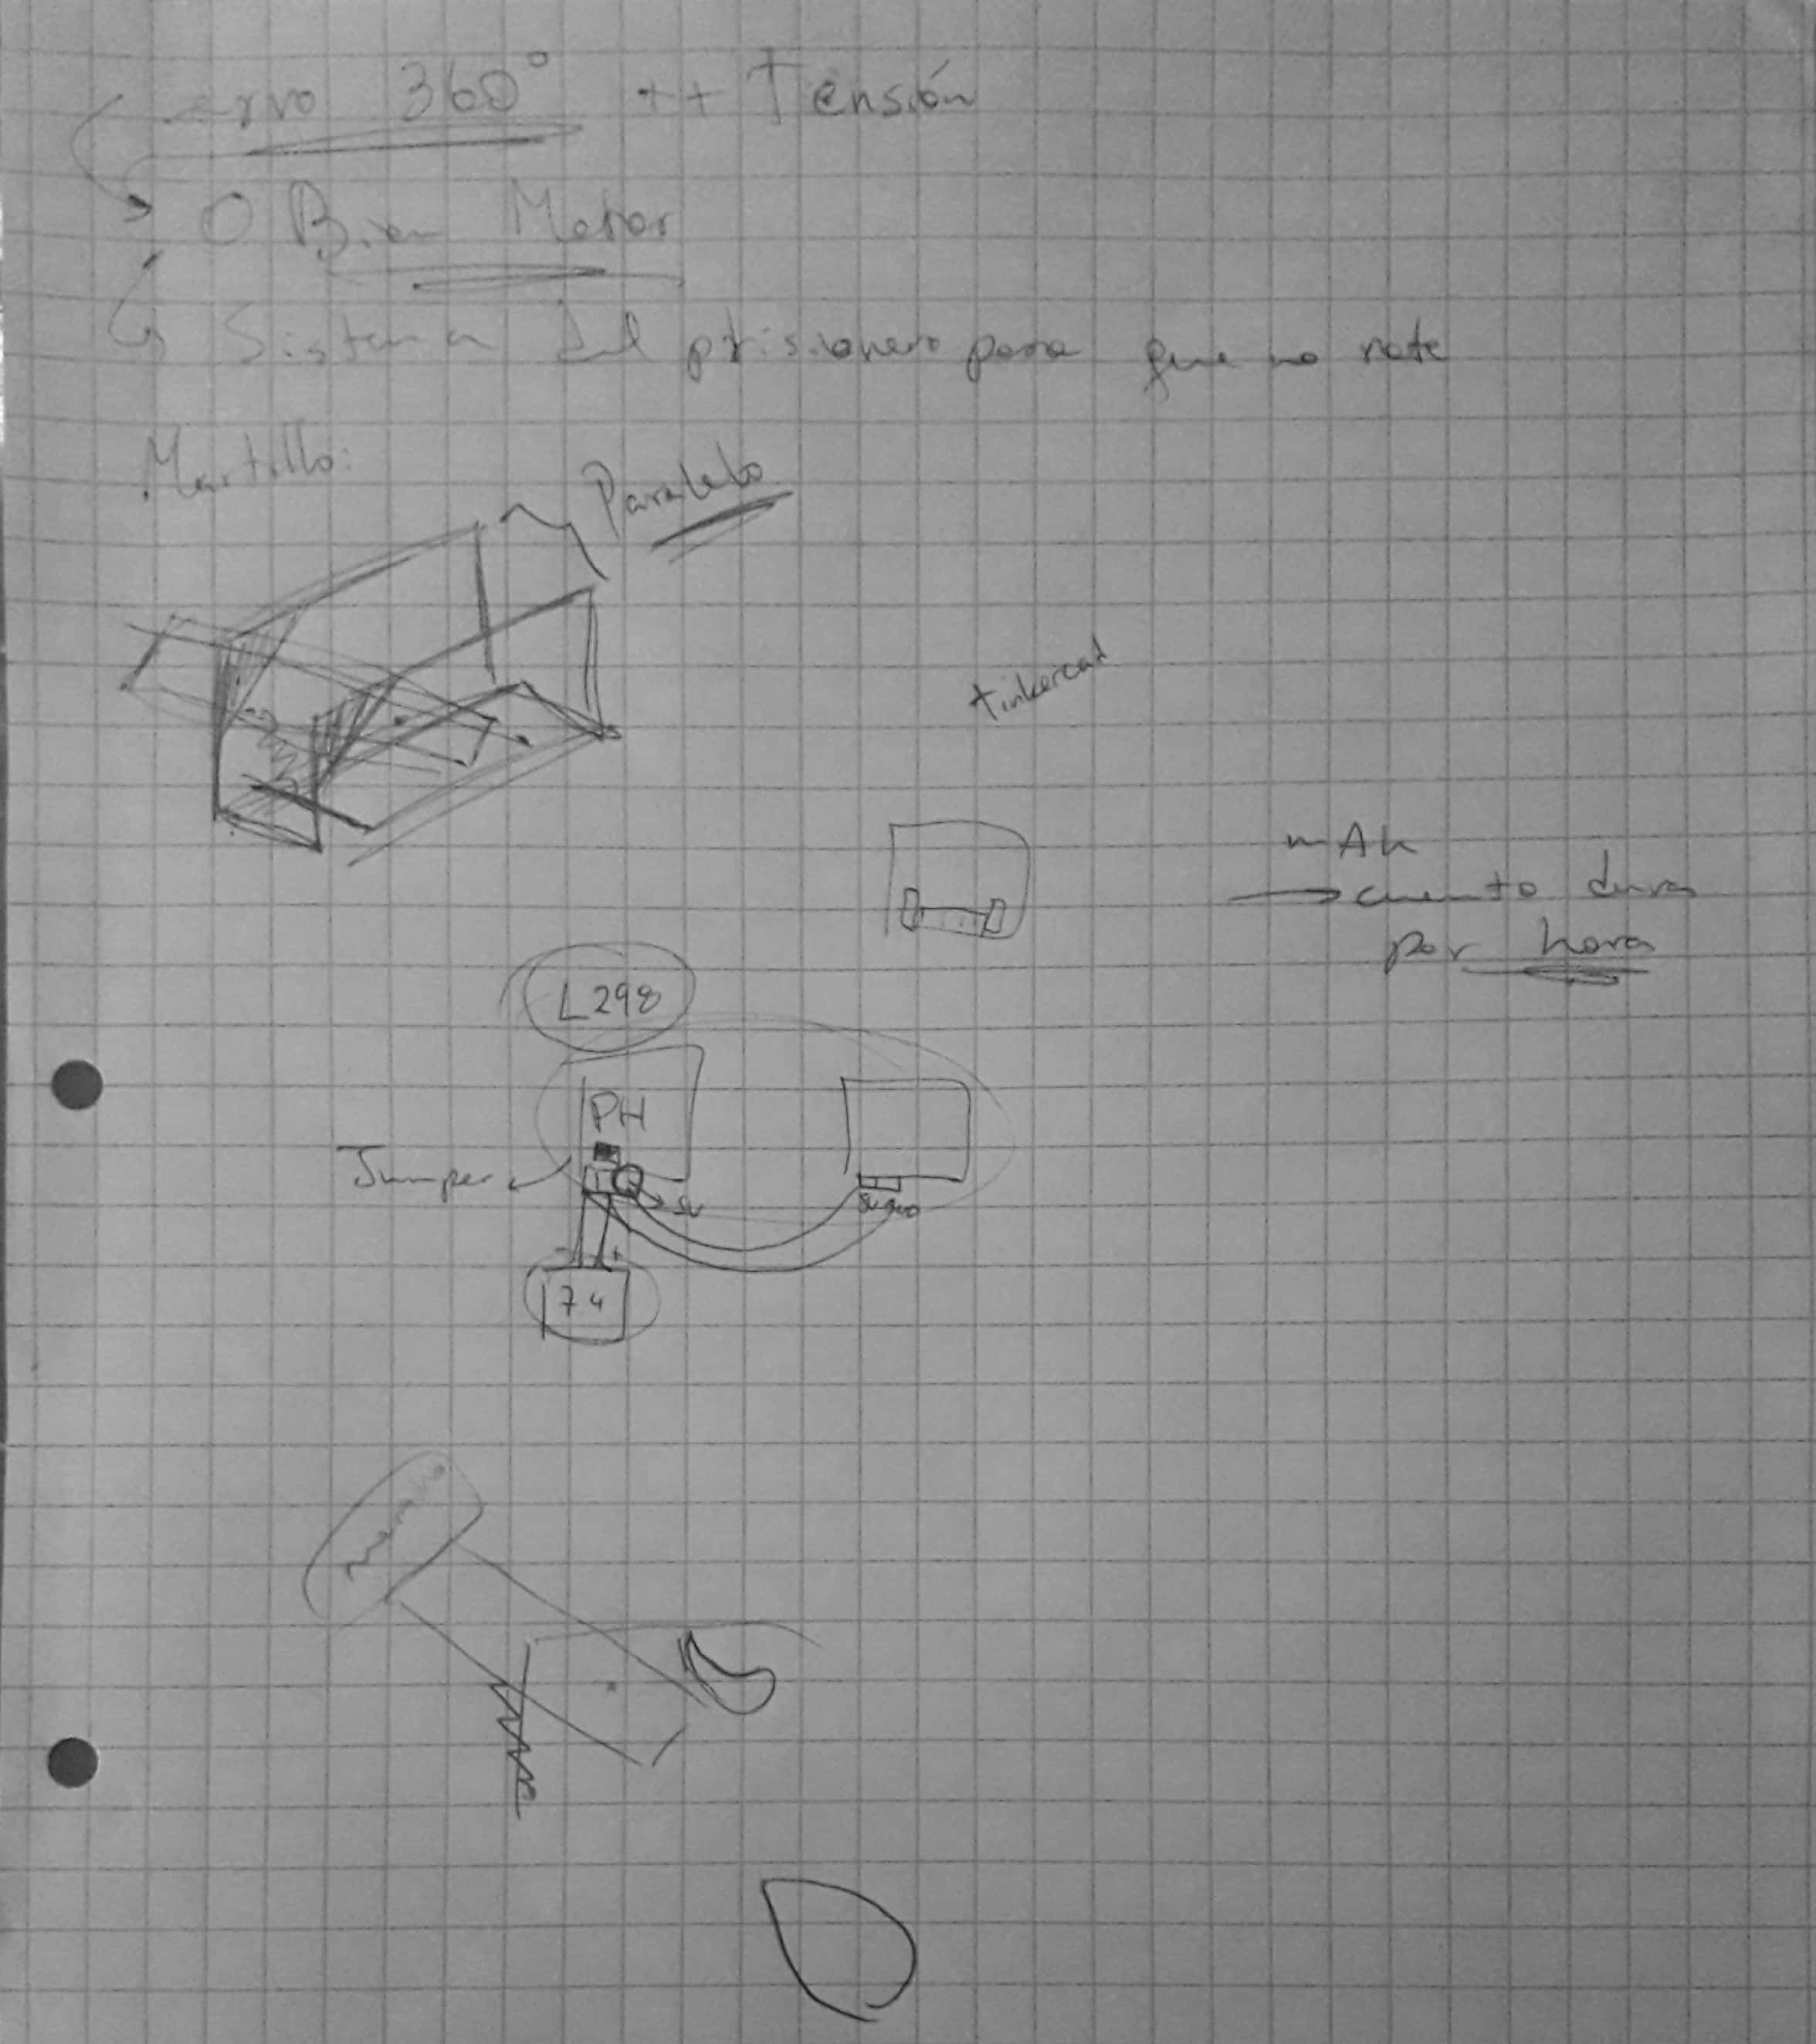 Servo 360° ++ Tensión
O Bien Motor
Sistema del prisionero para que no rote
Martillo:
Paralelo
tinkercad
mAh
cuanto dura
por hora
L298
PH
Jumper
5V
7 4